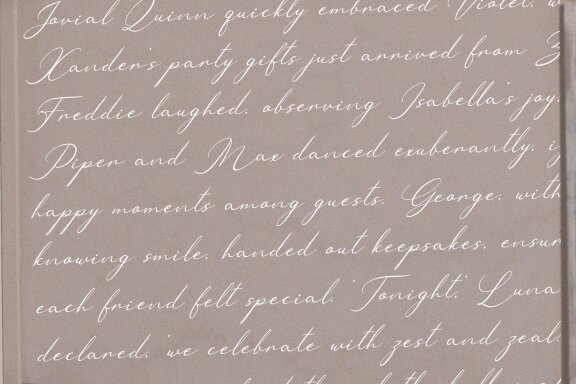 Jovial Quinn quickly embraced Violet. w
Xander's party gifts just arrived from Z
Freddie laughed. observing Isabella's joy.
Piper and Max danced exuberantly. ig
happy moments among guests. George. with
knowing smile. handed out keepsakes. ensur
each friend felt special. 'Tonight.' Luna
declared. 'we celebrate with zest and zeal.